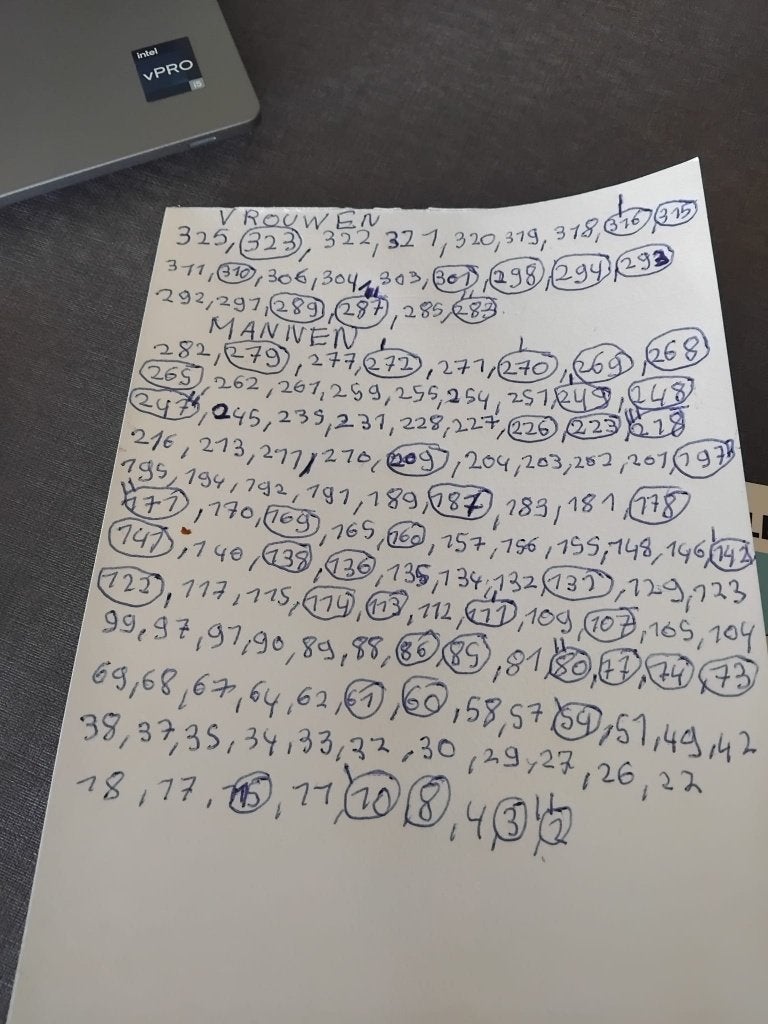 intel
vPRO
i5
VROUWEN
325, 323, 322, 321, 320, 319, 318, 316, 315
311, 310, 306, 304, 303, 301, 298, 294, 293
292, 291, 289, 287, 285, 283
MANNEN
282, 279, 277, 272, 271, 270, 269, 268
265, 262, 261, 259, 255, 254, 251, 249, 248
247, 245, 235, 231, 228, 227, 226, 223, 218
216, 213, 211, 210, 209, 204, 203, 202, 201, 197
195, 194, 192, 191, 189, 187, 183, 181, 178
171, 170, 169, 165, 160, 157, 156, 155, 148, 146, 142
141, 140, 138, 136, 135, 134, 132, 131, 129, 123
122, 117, 115, 114, 113, 112, 111, 109, 107, 105, 104
99, 97, 91, 90, 89, 88, 86, 85, 81, 80, 77, 74, 73
69, 68, 67, 64, 62, 61, 60, 58, 57, 54, 51, 49, 42
38, 37, 35, 34, 33, 32, 30, 29, 27, 26, 22
18, 17, 15, 11, 10, 8, 4, 3, 2